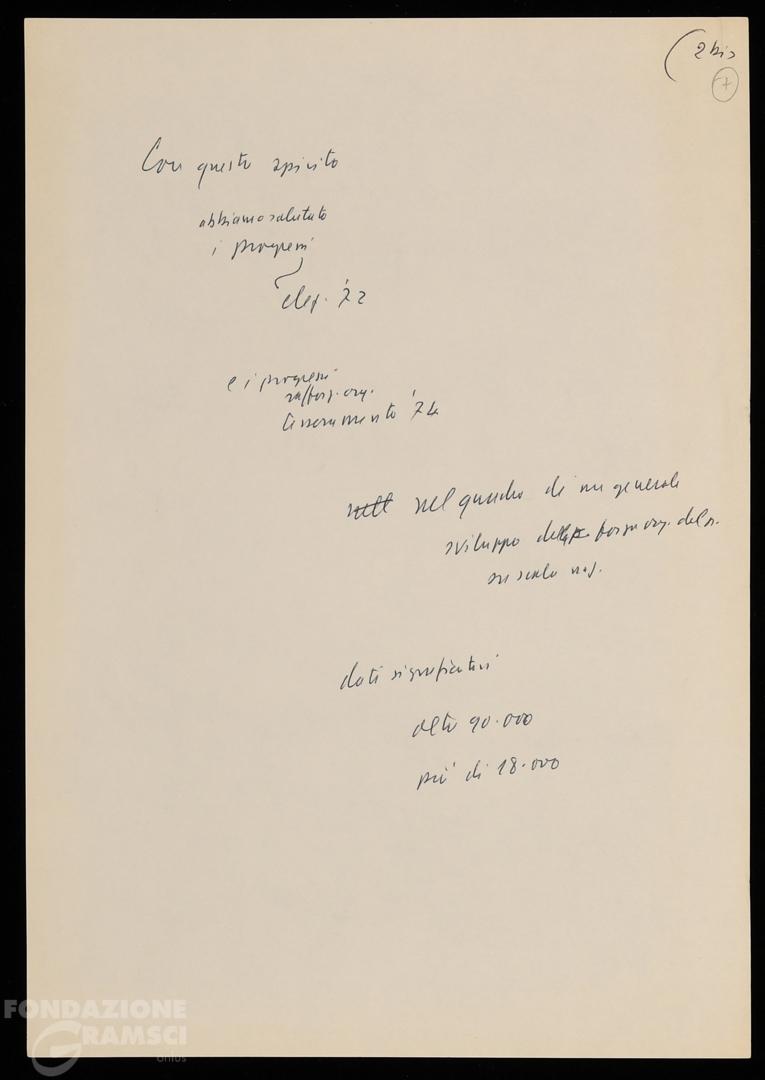 (2 bis
+
Con questo spirito
abbiamo salutato
i progressi
elez. '72
e i progressi
rafforz. org.
tesseramento '74
nell nel quadro di un generale
sviluppo della forza org. del p.
su scala naz.
dati significativi
oltre 90.000
più di 18.000
FONDAZIONE
GRAMSCI
onlus